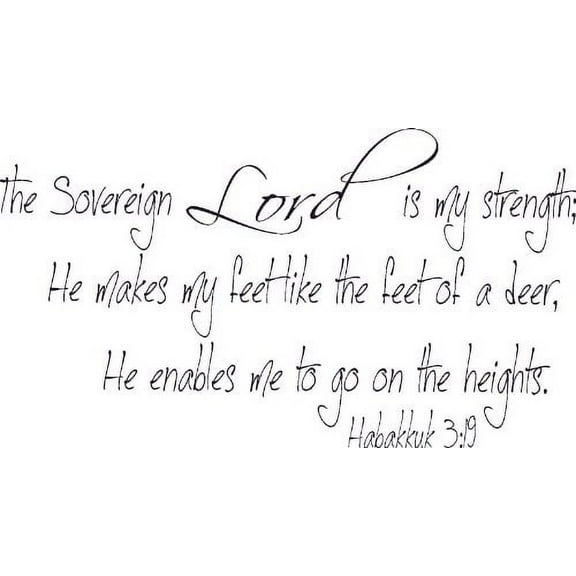 the Sovereign Lord is my strength;
He makes my feet like the feet of a deer,
He enables me to go on the heights.
Habakkuk 3:19